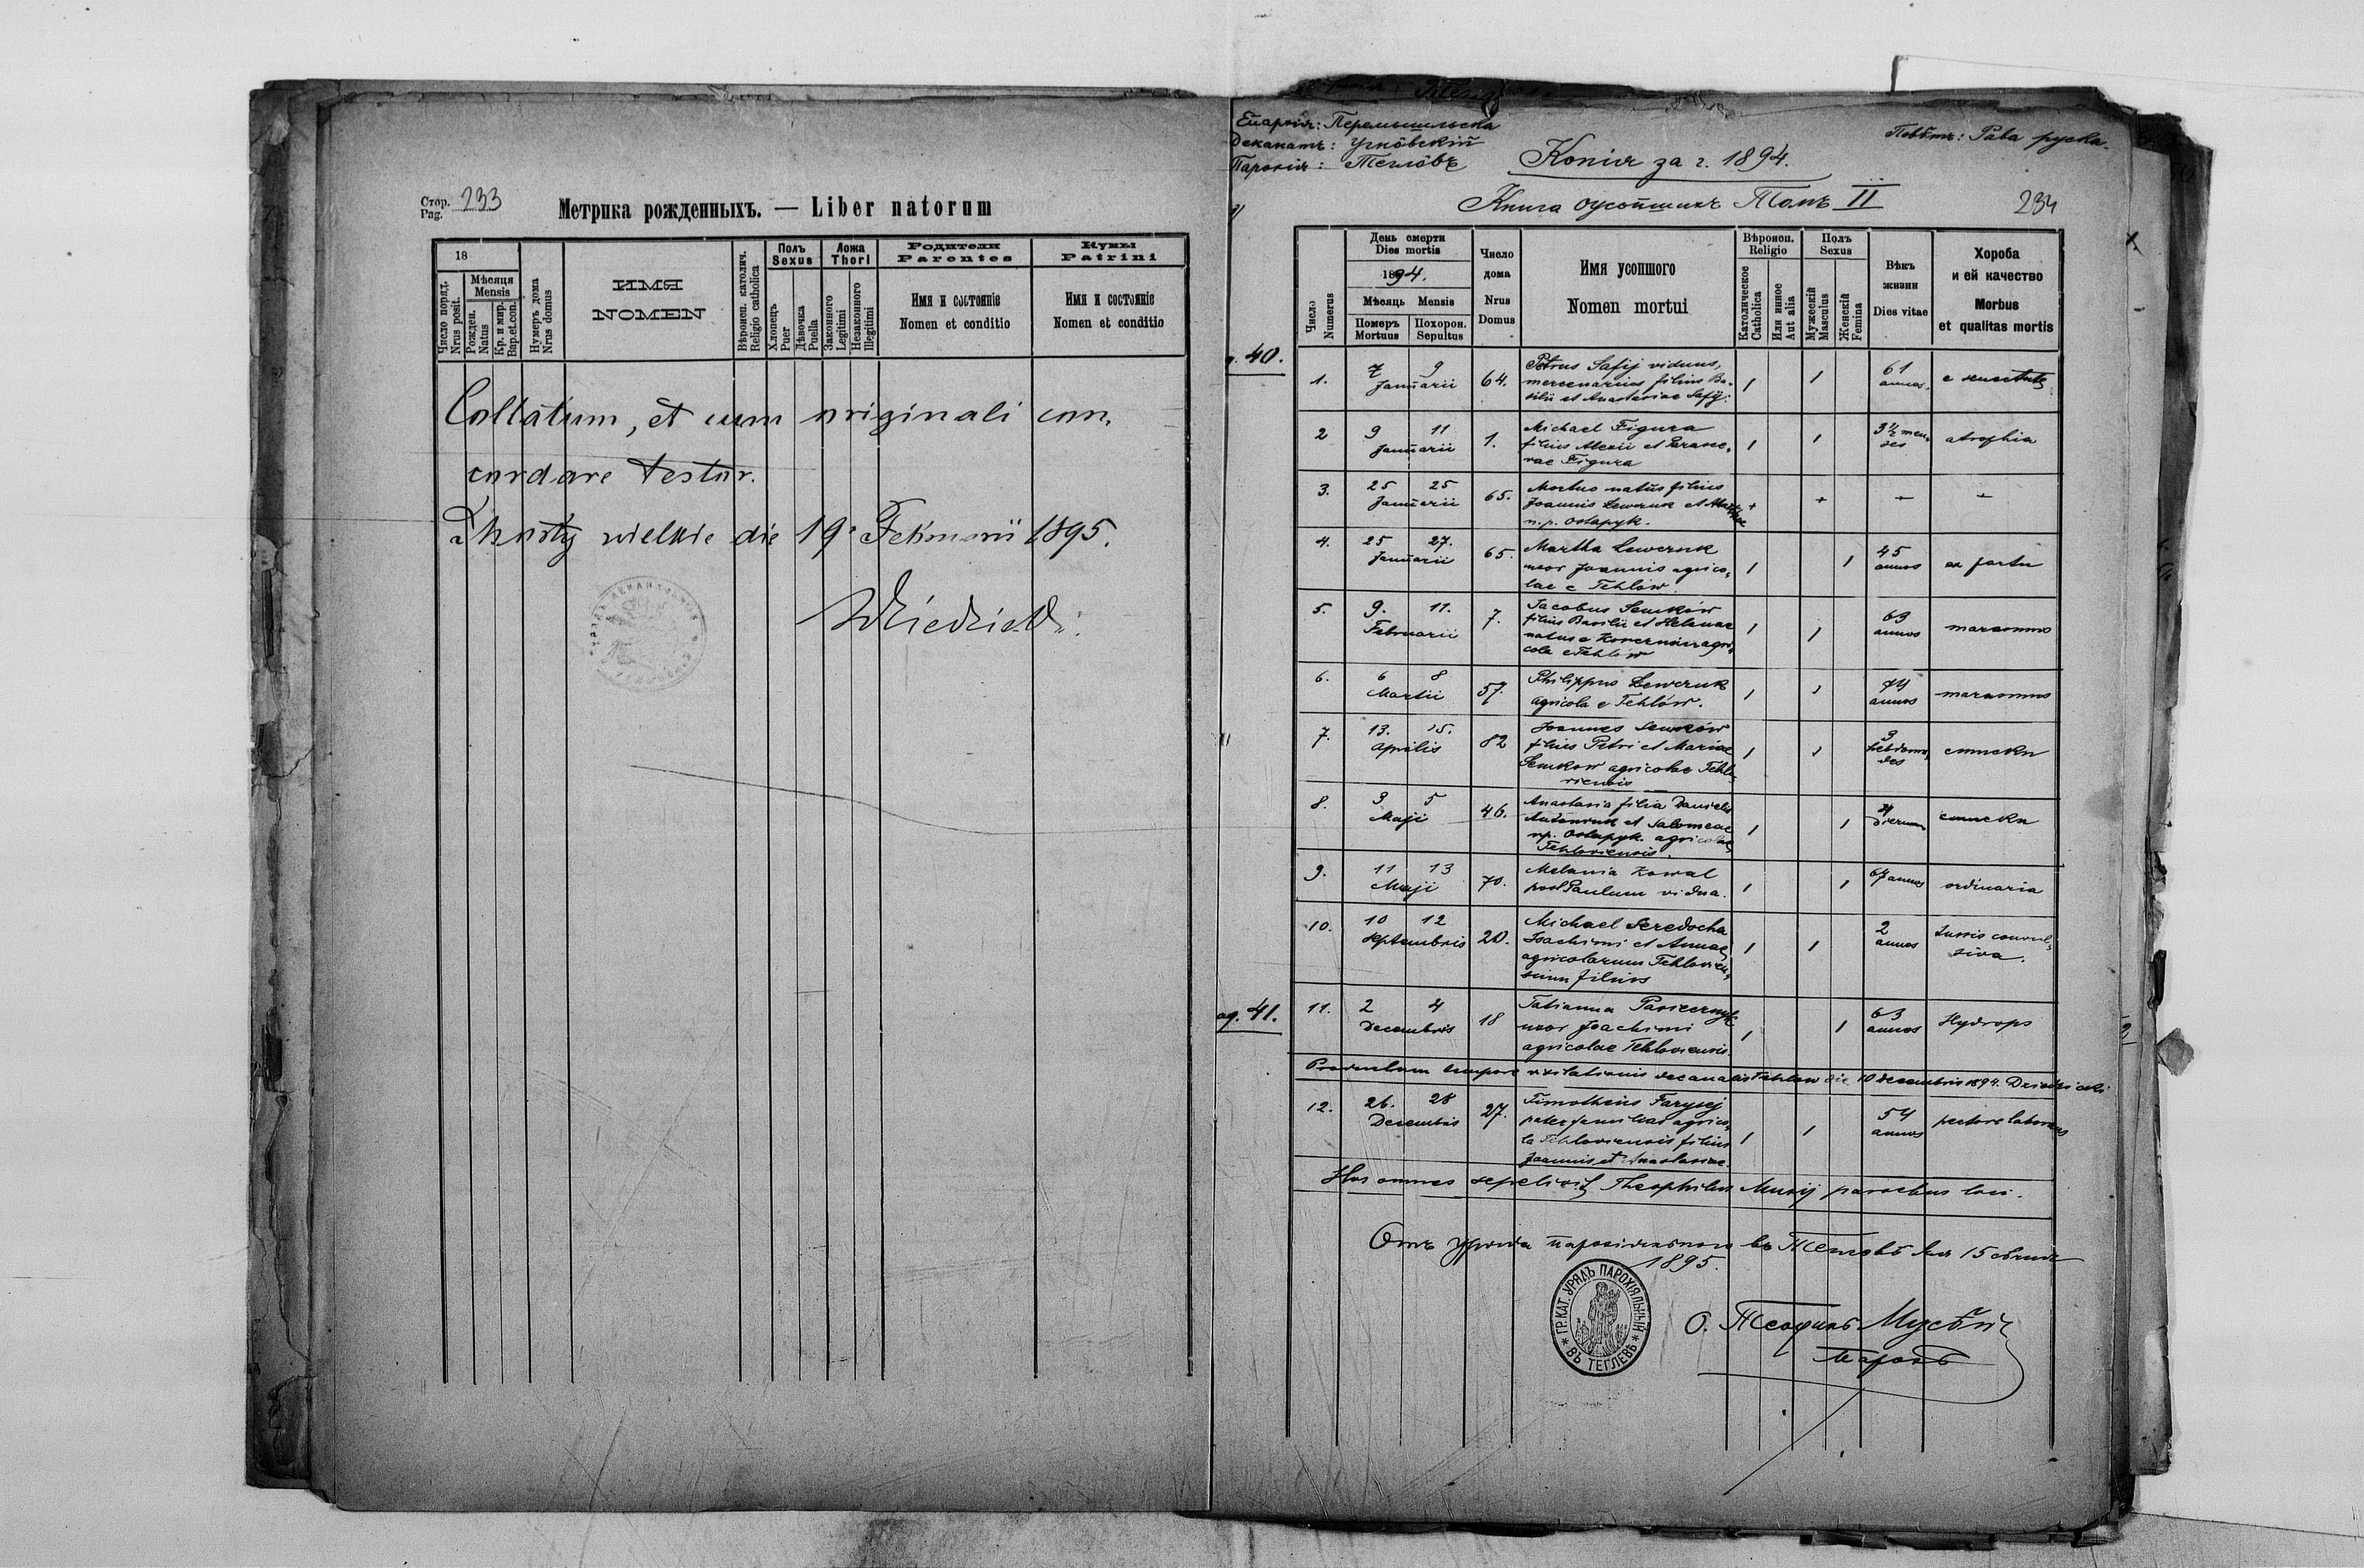 Стор. 233
Pag.
Метрика рожденныхъ. — Liber natorum
18
Число поряд.
Nrus posit.
Мѣсяця
Mensis
Рожден.
Natus
Кр. и мир.
Bap. et con.
Нумеръ дома
Nrus domus
ИМЯ
NOMEN
Вѣроисп. католич.
Religio catholica
Полъ
Sexus
Хлопецъ
Puer
Дѣвочка
Puella
Ложа
Thori
Законного
Legitimi
Незаконного
Illegitimi
Родители
Parentes
Имя и состоянiе
Nomen et conditio
Кумы
Patrini
Имя и состоянiе
Nomen et conditio
Collatum, et cum originali con,
cordare testor.
wielkie die 19. Februarii 1895.
Епархія: Перемышльска
Деканатъ: Угнôвскій
Парохія: Теглôвъ
Повѣтъ: Рава руска.
Копія за г. 1894.
Книга усопшихъ Томъ II
234
Число
Numerus
День смерти
Dies mortis
1894.
Мѣсяць Mensis
Померъ
Mortuus
Похорон.
Sepultus
Число
дома
Nrus
Domus
Имя усопшого
Nomen mortui
Вѣроисп.
Religio
Католическое
Catholica
Или инное
Aut alia
Полъ
Sexus
Мужескій
Masculus
Женскій
Femina
Вѣкъ
жизни
Dies vitae
Хороба
и ей качество
Morbus
et qualitas mortis
40.
1. 7 9 Januarii 64. Petrus Safij viduus,
mercenarius filius Ba-
silii et Anastasiae Safij. 1 1 61 annos. e senectute
2 9 11 Januarii 1. Michael Figura
filius Alexii et Parasce,
vae Figura 1 1 3½ men,
ses atrophia
3. 25 25 Januarii 65. Mortuo natus filius
Joannis Lewczuk et Marthae
n. p. Ostapyk. + + + +
4. 25 27. Januarii 65. Martha Lewczuk
uxor Joannis agrico,
lae e Tehlów. 1 1 45 annos ex partu
5. 9. 11. Februarii 7. Jacobus Senków
filius Basilii et Helenae
natus e agri,
cola e Tehlów 1 1 63 annos marasmus
6. 6 8 Martii 57. Philippus Lewczuk
agricola e Tehlów. 1 1 74 annos marasmus
7. 13. 15. Aprilis 82 Joannes Senków
filius Petri et Mariae
Senkow agricolae Tehlo-
viensis 1 1 3 hebdoma,
des
8. 3 5 Maji 46. Anastasia filia Danielis
et Salomeae
n.p. Ostapyk. agricolae
Tehloviensis. 1 1 dierum
9. 11 13 Maji 70. Melania Kowal
post Paulum vidua. 1 1 67 annos ordinaria
10. 10 12 Septembris 20. Michael Seredocha
Joachimi et Annae
agricolarum Tehlovien,
sium filius 1 1 2 annos Tussis convul,
siva.
pag. 41.
11. 2 4 Decembris 18 Tatianna
uxor Joachimi
agricolae Tehloviensis. 1 1 63 annos Hydrops
Productum tempore visitationis decanalis Tehlow die 10 decembris 1894.
12. 26. 28 Decembris 27. Timotheus Farysej
pater familias agrico,
la Tehloviensis filius
Joannis et Anastasiae. 1 1 54 annos pectore laborans
Hos omnes sepelivit Theophilus Musij parochus loci.
Отъ уряда парохіяльного въ Теглôвѣ дня 15 сѣчня
1895.
ГР. КАТ. УРЯДЪ ПАРОХІЯЛЬНЫЙ
ВЪ ТЕГЛЕВѢ
О. Теофилъ
парохъ